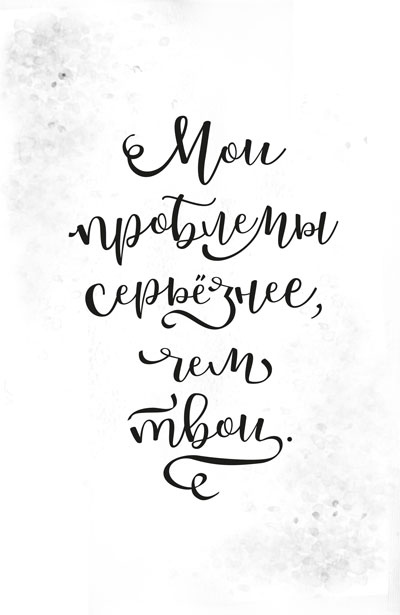 Мои
проблемы
серьёзнее,
чем
твои.